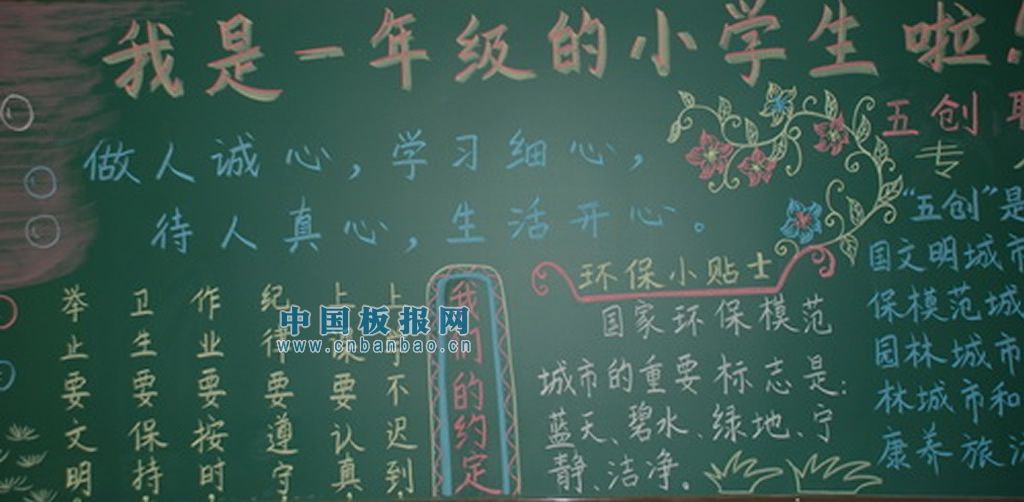 我是一年级的小学生啦!
做人诚心,学习细心,
待人真心,生活开心。
我们的约定
上学不迟到,
上课要认真,
纪律要遵守,
作业要按时,
卫生要保持,
举止要文明,
中国板报网
www.cnbanbao.cn
环保小贴士
国家环保模范
城市的重要标志是:
蓝天、碧水、绿地、宁
静、洁净。
五创
专
“五创”是
国文明城市
保模范城
园林城市
林城市和
康养旅